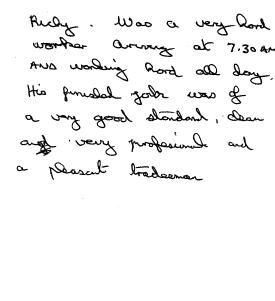 Ricky. Was a very hard
worker arriving at 7.30 AM
AND working hard all day.
His finished job was of
a very good standard, clean
and very profesional and
a pleasent tradesman